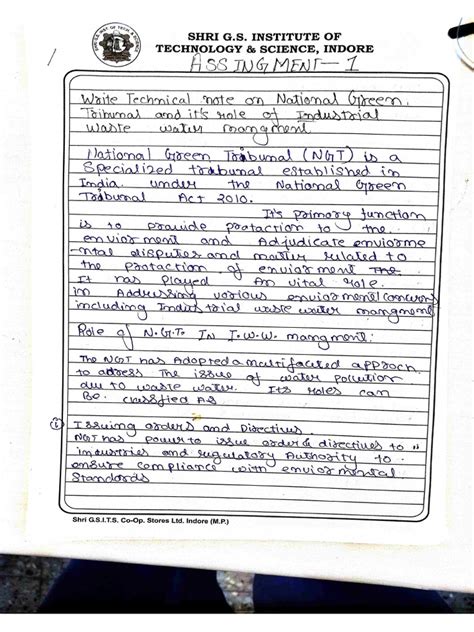 SHRI G.S. INSTITUTE OF
TECHNOLOGY & SCIENCE, INDORE
ASSINGMENT-1
Write Technical note on National Green
Tribunal and it's role of Industrial
waste water mangment
National Green Tribunal (NGT) is a
Specialized trabunal established in
India under the National Green
Tribunal Act 2010.
It's primary function
is to provide protaction to the
enviorment and Adjudicate enviorme
-ntal disputes and matter related to
the protaction of enviorment The
It has played An vital role
in Addressing various enviormentel concerns
including Industrial waste water mangment
Role of N.G.T. IN I.W.W. mangment:
The NGT has Adopted a multifaceted approch
to address The issue of water pollution
due to waste water. Its roles can
Be classified As
(i) Issuing orders and Directivs.
NGT has power to issue order & directives to
industries and regulatory Authority to
ensure compliance with enviormental
Standards
Shri G.S.I.T.S. Co-Op. Stores Ltd. Indore (M.P.)